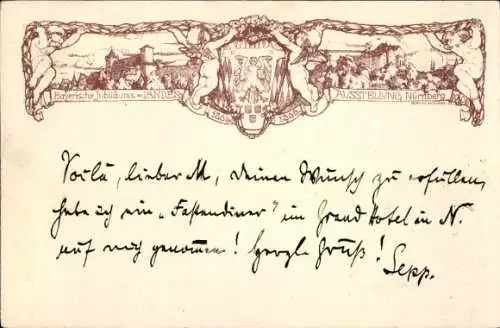 Bayerische Jubiläums-LANDES
AUSSTELLUNG Nürnberg
1806 1906
Voilà, lieber M, deinen Wunsch zu erfüllen,
habe ich ein „Fastendiner" im Grand Hotel in N.
auf mich genommen! Herzl. Gruß!
Sepp.